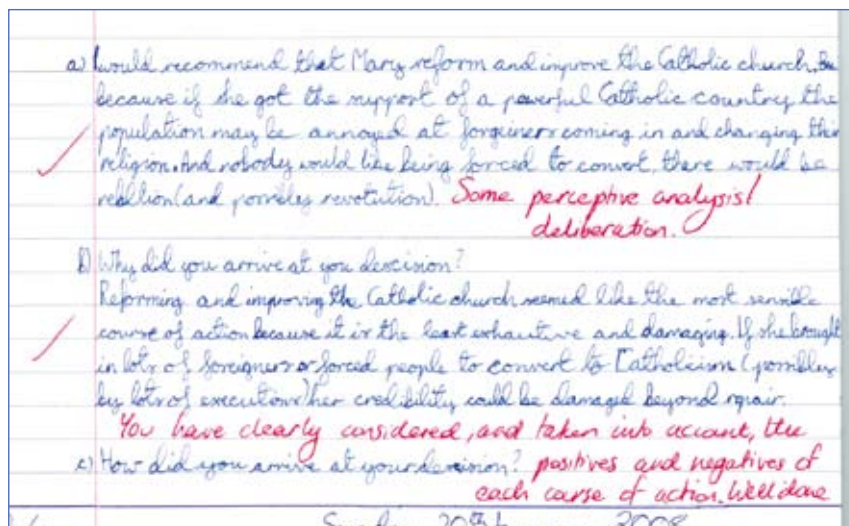 a) I would recommend that Mary reform and improve the Catholic church,
because if she got the support of a powerful Catholic country the
population may be annoyed at forgeiners coming in and changing their
religion. And nobody would like being forced to convert, there would be
rebllion (and possibley revolution). Some perceptive analysis/
deliberation.
b) Why did you arrive at you descision?
Reforming and improving the Catholic church seemed like the most sensible
course of action because it is the least exhaustive and damaging. If she brought
in lots of foreigners or forced people to convert to Catholicism (possibley
by lots of executions) her credibility could be damaged beyond repair.
You have clearly considered, and taken into account, the
c) How did you arrive at your decision? positives and negatives of
each course of action. Well done
Sunday 20th 2008